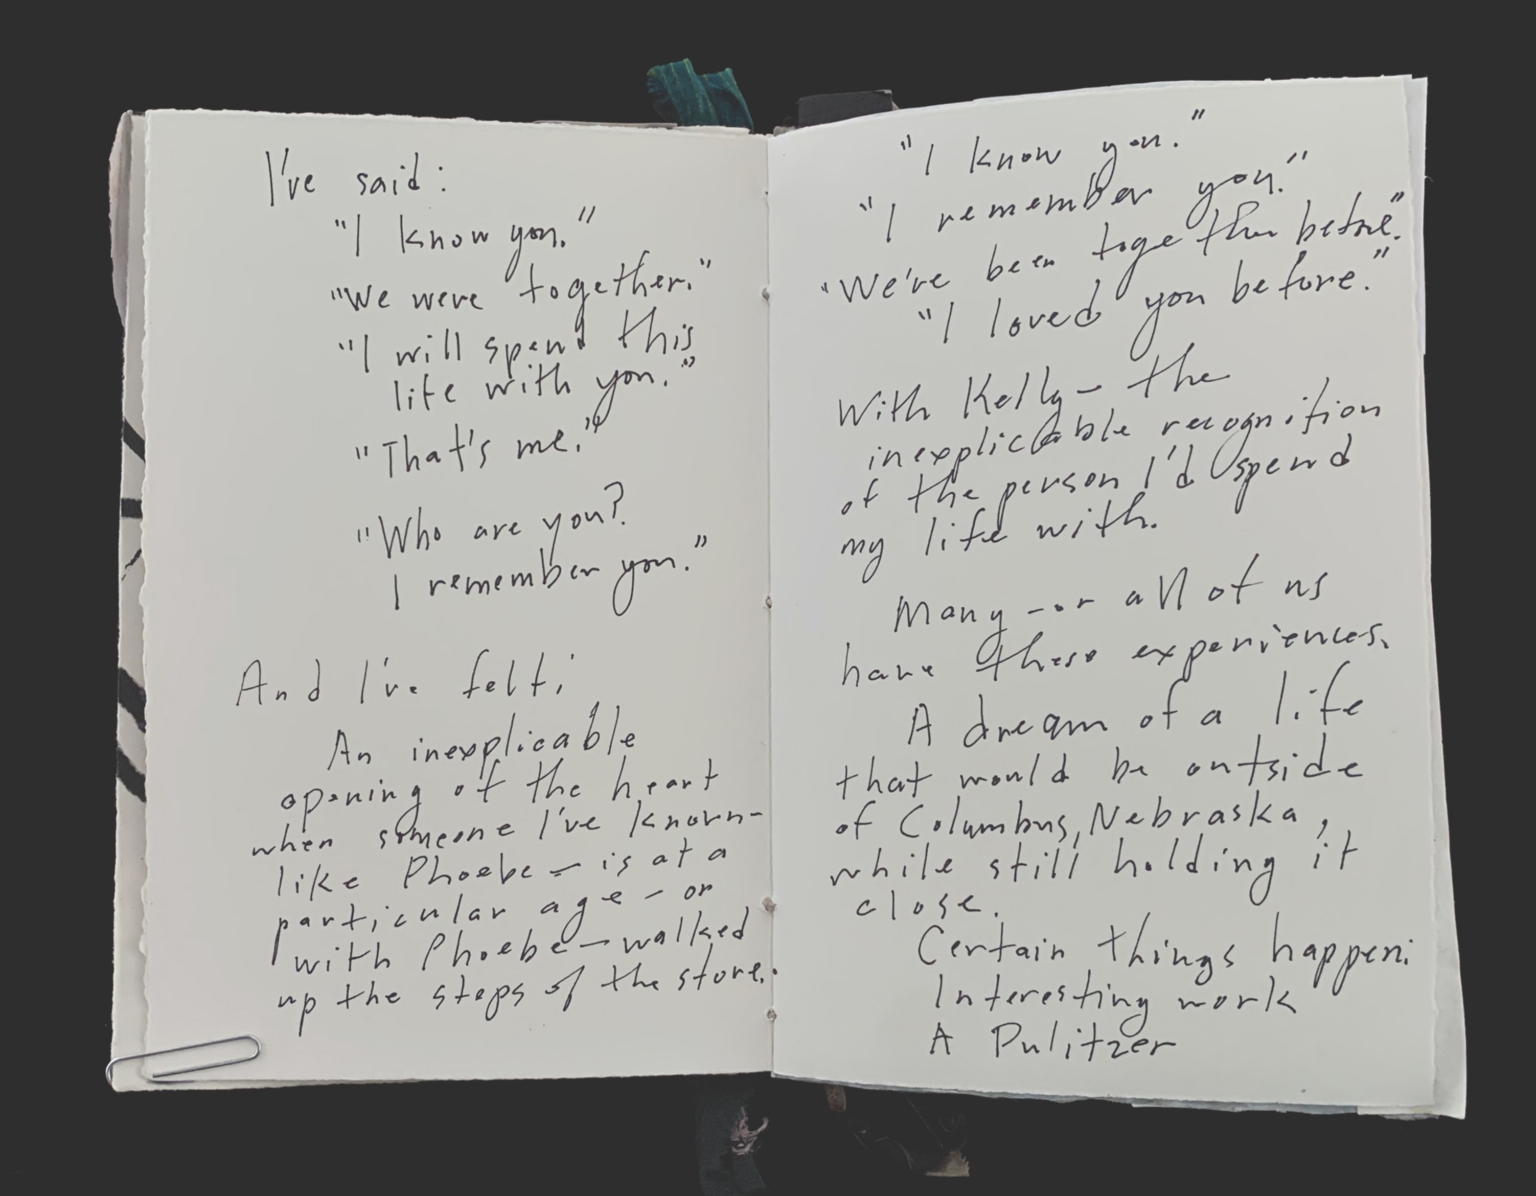 I've said:
"I know you."
"We were together."
"I will spend this
life with you."
"That's me."
"Who are you?
I remember you."
And I've felt:
An inexplicable
opening of the heart
when someone I've known–
like Phoebe – is at a
particular age – or
with Phoebe – walked
up the steps of the store.
"I know you."
"I remember you."
"We've been together before."
"I loved you before."
With Kelly – the
inexplicable recognition
of the person I'd spend
my life with.
Many – or all of us
have these experiences.
A dream of a life
that would be outside
of Columbus, Nebraska,
while still holding it
close.
Certain things happen:
Interesting work
A Pulitzer